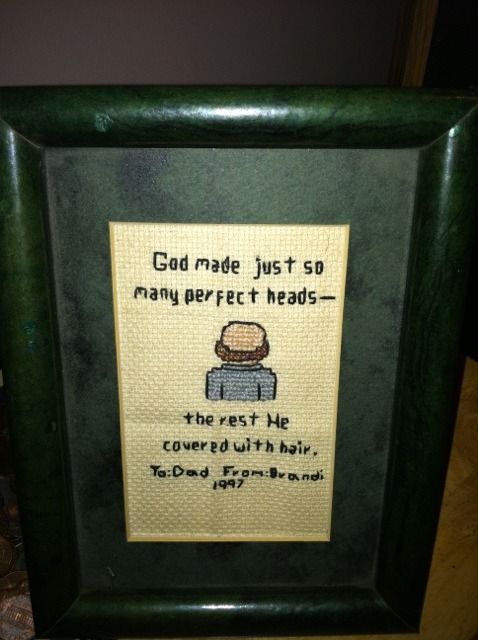 God made just so
many perfect heads—
the rest He
covered with hair.
To:Dad From:Brandi
1997